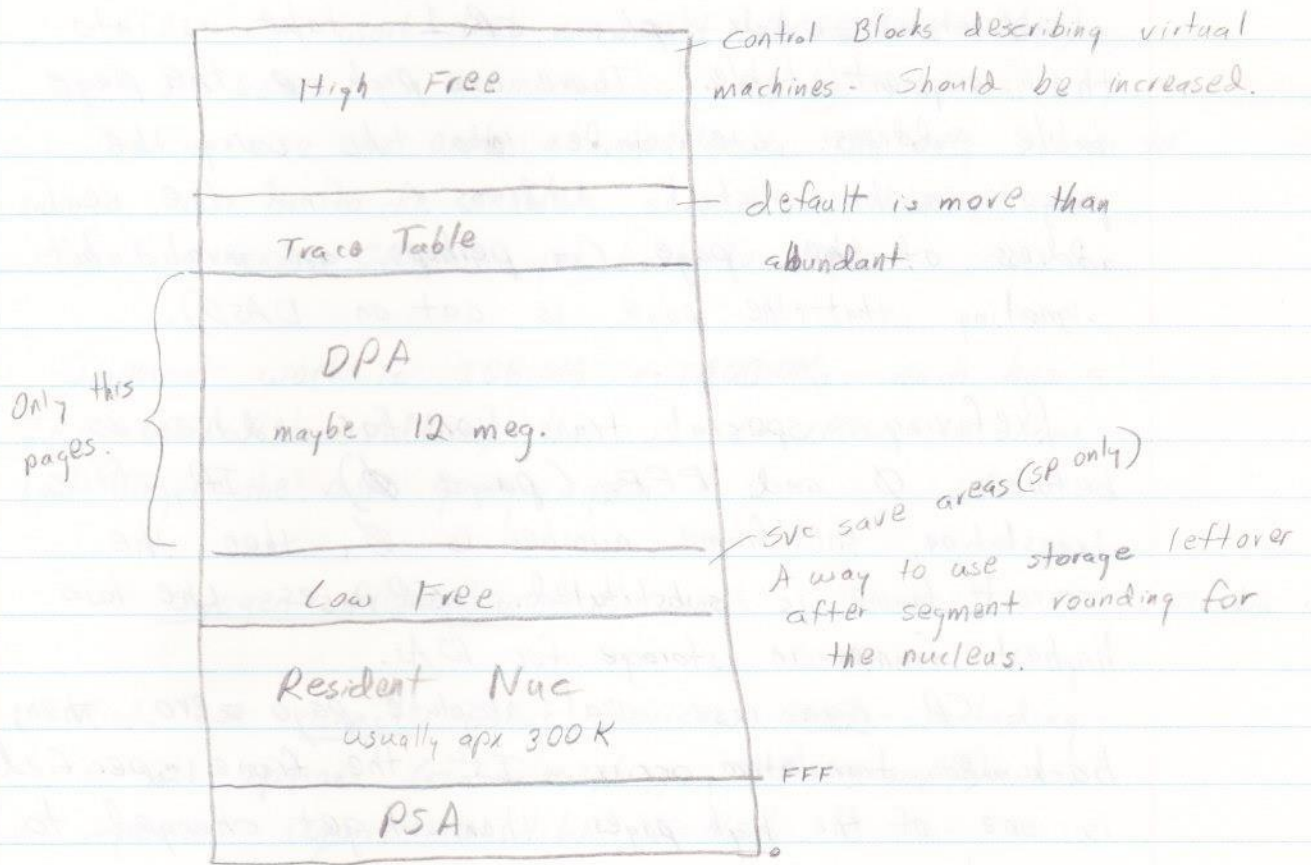 High Free
Control Blocks describing virtual
machines. Should be increased.
Trace Table
default is more than
abundant.
Only this
pages.
DPA
maybe 12 meg.
Low Free
SVC save areas (SP only)
A way to use storage leftover
after segment rounding for
the nucleus.
Resident Nuc
usually apx 300K
FFF
PSA
0